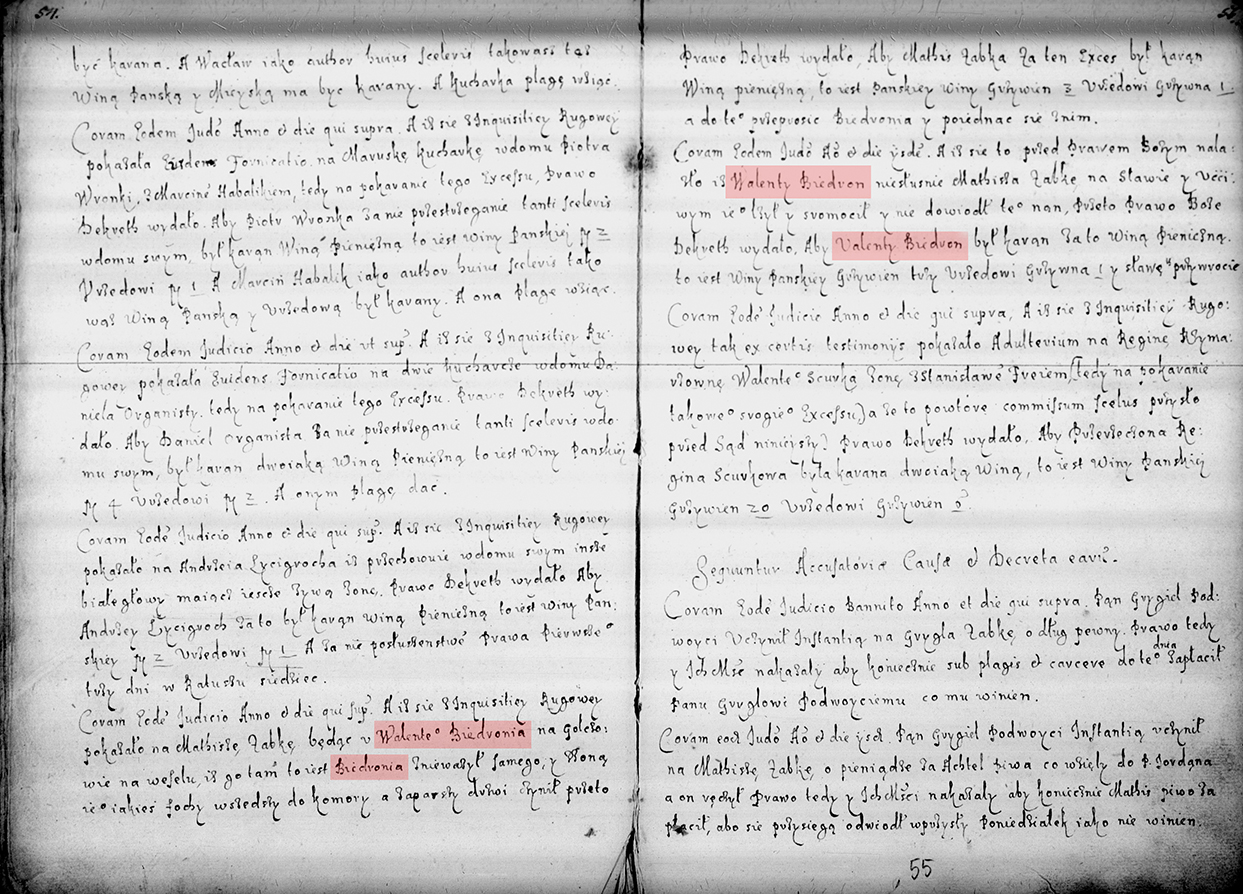 54.
być karana. A Wacław iako author huius sceleris takowasz też
Winą Pańską y Mieyską ma byc karany. A Kucharka plagę wziąć.
Coram Eodem Judō Anno & die qui supra. A iż sie z Inquisitiey Rugowey
pokazała Euidens Fornicatio na Maruskę Kucharkę wdomu Piotra
Wronki, z Marcinē Habalikiem, tedy na pokaranie tego Excessu, Prawo
Dekreth wydało. Aby Piotr Wronka za nie przestrzeganie tanti sceleris
wdomu swym, był karąn Winą Pieniężną to iest Winy Pańskiej M 2
Vrzedowi M 1 A Marcin Habalik iako author huius sceleris tako
wąs Winą Pańską y Vrzedową był karany. A ona Plagę wziąć.
Coram Eodem Judicio Anno & die vt sup. A iż sie z Inquisitiey Ru:
gowey pokazała Euidens Fornicatio na dwie kucharcze wdomu Da:
niela Organisty. tedy na pokaranie tego Excessu. Prawo Dekreth wy:
dało. Aby Daniel Organista za nie przestrzeganie tanti sceleris wdo:
mu swym, był karan dwoiaką Winą Pieniężną to iest Winy Pańskiej
M 4 Vrzedowi M 2. A onym Plagę dać.
Coram Eodē Judicio Anno & die qui sup. A iż sie z Inquisitiey Rugowey
pokazało na Andrzeia Łycigrocha iz przechowuie wdomu swym insze
białegłowy maiąc iescze żywą żonę. Prawo Dekreth wydało Aby
Andrzey Łycigroch zato był karąn winą Pieniężną to iest Winy Pań:
skiey M 2 Vrzedowi M 1 A za nie posłuszenstwe Prawa Pierwsze°
trzy dni w Ratuszu siedziec.
Coram Eodē Judicio Anno & die qui sup. A iż sie z Inquisitiey Rugowey
pokazało na Mathiszę Ząbkę będąc v Walente° Biedronia na Golczo:
wie na weselu, iż go tam to iest Biedronia zniewazył samego, y żoną
ie° iakieś fochy wszedszy do komory a zaparszy drzwi czynił przeto
Prawo Dekreth wydało, Aby Mathis Ząbka za ten Exces był karąn
Winą pieniężną, to iest Pańskiey Winy Grzywien 2 Vrzedowi Grzywna 1.
a do te° przeprosic Biedronia y poiednac sie znim.
Coram Eodem Judō Aō & die ysdē. A iż sie to przed Prawem Bożym nala:
zło iż Walenty Biedron niesłusnie Mathisza Ząbkę na Sławie y Vćći:
wym ie° lżył y sromocił y nie dowiodł te° nań, Przeto Prawo Boże
Dekreth wydało, Aby Valenty Biedron był karan zato Winą Pieniężną.
to iest Winy Pańskiey Grzywien trzy Vrzedowi Grzywna 1 y sławę przywrocic
Coram Eodē Judicio Anno & die qui supra, A iż sie z Inquisitiey Rugo:
wey tak ex certis testimonijs pokazało Adulterium na Reginę Krzyma:
rzownę Walente° Scurką żonę z Stanisławē Freiem, Tedy na pokaranie
takowe° srogie° Excessu,) a że to powtore commissum scelus przyszło
przed Sąd ninieyszy) Prawo Dekreth wydało. Aby Przerzeczona Re:
gina Scurkowa była karana dwoiaką Winą, to iest Winy Pańskiej
Grzywien 20 Vrzedowi Grzywien
Sequuntur Accusatoriæ Causæ & Decreta earū.
Coram Eodē Judicio Bannito Anno et die qui supra Pąn Grygiel Pod:
woyci Vczynił Instantią na Grygla Ząbkę, o dług pewny. Prawo tedy
y Ich Mść nakazały aby koniecznie sub plagis & carcere do te° dnia zapłacił
Panu Gryglowi Podwoyciemu co mu winien.
Coram eod Judō Aō & die ysd. Pąn Grygiel Podwoyci Instantią vczynił
na Mathiszę Ząbkę, o pieniądze za Achtel Piwa co wzięły do P. Jordąna
a on ręczył Prawo tedy y Ich Mści nakazały aby koniecznie Mathis piwo za
płacił, abo sie przysięgą odwiodł wprzyszły Poniedziałek iako nie winien.
55